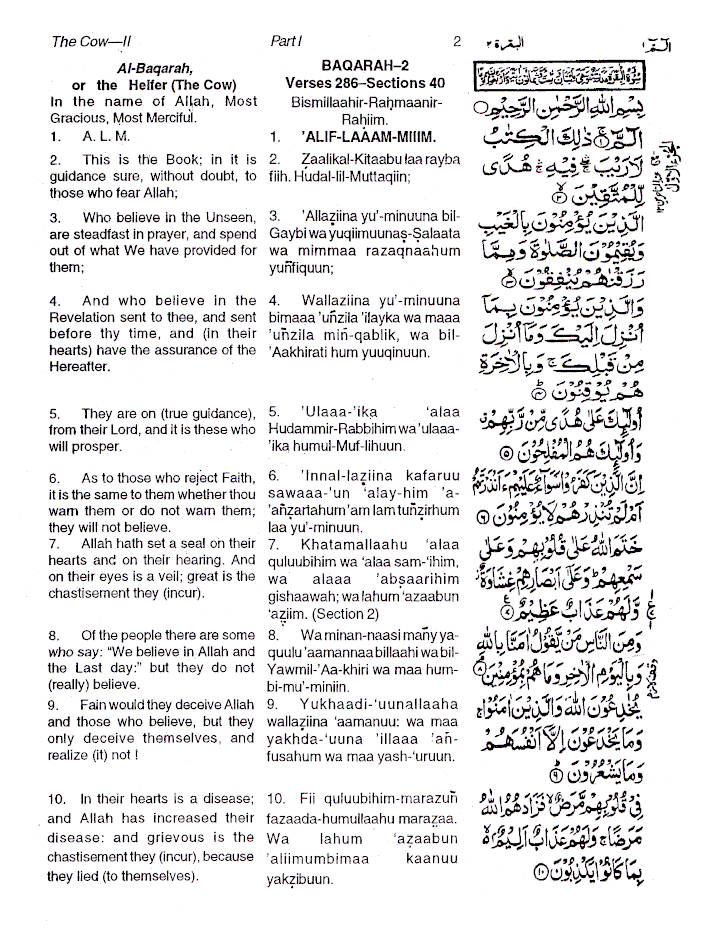 The Cow—II
Part I
2
البقرة ٢
الٓمّٓ ١
Al-Baqarah,
or the Heifer (The Cow)
In the name of Allah, Most
Gracious, Most Merciful.
1. A. L. M.
2. This is the Book; in it is
guidance sure, without doubt, to
those who fear Allah;
3. Who believe in the Unseen,
are steadfast in prayer, and spend
out of what We have provided for
them;
4. And who believe in the
Revelation sent to thee, and sent
before thy time, and (in their
hearts) have the assurance of the
Hereafter.
5. They are on (true guidance),
from their Lord, and it is these who
will prosper.
6. As to those who reject Faith,
it is the same to them whether thou
warn them or do not warn them;
they will not believe.
7. Allah hath set a seal on their
hearts and on their hearing. And
on their eyes is a veil; great is the
chastisement they (incur).
8. Of the people there are some
who say: “We believe in Allah and
the Last day:” but they do not
(really) believe.
9. Fain would they deceive Allah
and those who believe, but they
only deceive themselves, and
realize (it) not !
10. In their hearts is a disease;
and Allah has increased their
disease: and grievous is the
chastisement they (incur), because
they lied (to themselves).
BAQARAH–2
Verses 286–Sections 40
Bismillaahir-Raḥmaanir-
Raḥiim.
1. ’ALIF-LAAAM-MIIIM.
2. Ẓaalikal-Kitaabu laa rayba
fiih. Hudal-lil-Muttaqiin;
3. ’Allaẓiina yu’-minuuna bil-
Gaybi wa yuqiimuunaṣ-Ṣalaata
wa mimmaa razaqnaahum
yuñfiquun;
4. Wallaziina yu’-minuuna
bimaaa ’uñzila ’ilayka wa maaa
’uñzila miñ-qablik, wa bil-
’Aakhirati hum yuuqinuun.
5. ’Ulaaa-’ika ‘alaa
Hudammir-Rabbihim wa ’ulaaa-
’ika humul-Muf-lihuun.
6. ’Innal-laziina kafaruu
sawaaa-’un ‘alay-him ’a-
’añẓartahum ’am lam tuñẓirhum
laa yu’-minuun.
7. Khatamallaahu ‘alaa
quluubihim wa ‘alaa sam-‘ihim,
wa alaaa ’abṣaarihim
gishaawah; wa lahum ‘azaabun
‘aẓiim. (Section 2)
8. Wa minan-naasi mañy ya-
quulu ’aamannaa billaahi wa bil-
Yawmil-’Aa-khiri wa maa hum-
bi-mu’-miniin.
9. Yukhaadi-‘uunallaaha
wallaziina ’aamanuu: wa maa
yakhda-‘uuna ’illaaa ’añ-
fusahum wa maa yash-‘uruun.
10. Fii quluubihim-marazuñ
fazaada-humullaahu maraẓaa.
Wa lahum ‘aẓaabun
’aliimumbimaa kaanuu
yakẓibuun.
بِسْمِ اللهِ الرَّحْمٰنِ الرَّحِيْمِ
الٓمّٓ ۚ ١ ذٰلِكَ الْكِتٰبُ
لَا رَيْبَ ۛ فِيْهِ ۛ هُدًى
لِّلْمُتَّقِيْنَ ٢
الَّذِيْنَ يُؤْمِنُوْنَ بِالْغَيْبِ
وَيُقِيْمُوْنَ الصَّلٰوةَ وَمِمَّا
رَزَقْنٰهُمْ يُنْفِقُوْنَ ٣
وَالَّذِيْنَ يُؤْمِنُوْنَ بِمَآ
اُنْزِلَ اِلَيْكَ وَمَآ اُنْزِلَ
مِنْ قَبْلِكَ ۚ وَبِالْاٰخِرَةِ
هُمْ يُوْقِنُوْنَ ٤
اُولٰٓئِكَ عَلٰى هُدًى مِّنْ رَّبِّهِمْ
وَاُولٰٓئِكَ هُمُ الْمُفْلِحُوْنَ ٥
اِنَّ الَّذِيْنَ كَفَرُوْا سَوَآءٌ عَلَيْهِمْ ءَاَنْذَرْتَهُمْ
اَمْ لَمْ تُنْذِرْهُمْ لَا يُؤْمِنُوْنَ ٦
خَتَمَ اللهُ عَلٰى قُلُوْبِهِمْ وَعَلٰى
سَمْعِهِمْ ۭ وَعَلٰٓى اَبْصَارِهِمْ غِشَاوَةٌ
وَّلَهُمْ عَذَابٌ عَظِيْمٌ ٧
وَمِنَ النَّاسِ مَنْ يَّقُوْلُ اٰمَنَّا بِاللهِ
وَبِالْيَوْمِ الْاٰخِرِ وَمَا هُمْ بِمُؤْمِنِيْنَ ٨
يُخٰدِعُوْنَ اللهَ وَالَّذِيْنَ اٰمَنُوْا ۚ
وَمَا يَخْدَعُوْنَ اِلَّآ اَنْفُسَهُمْ
وَمَا يَشْعُرُوْنَ ٩
فِيْ قُلُوْبِهِمْ مَّرَضٌ فَزَادَهُمُ اللهُ
مَرَضًا ۚ وَلَهُمْ عَذَابٌ اَلِيْمٌ
بِمَا كَانُوْا يَكْذِبُوْنَ ١٠